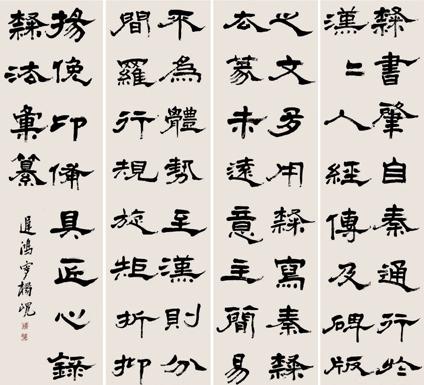 隸書肇自秦通行於
漢〻人經傳及碑版
之文多用隸寫秦隸
去篆未遠意主簡易
平為體勢至漢則分
間羅行規旋矩折抑
揚俛卬備具匠心錄
隸法彙纂
遲鴻楊峴